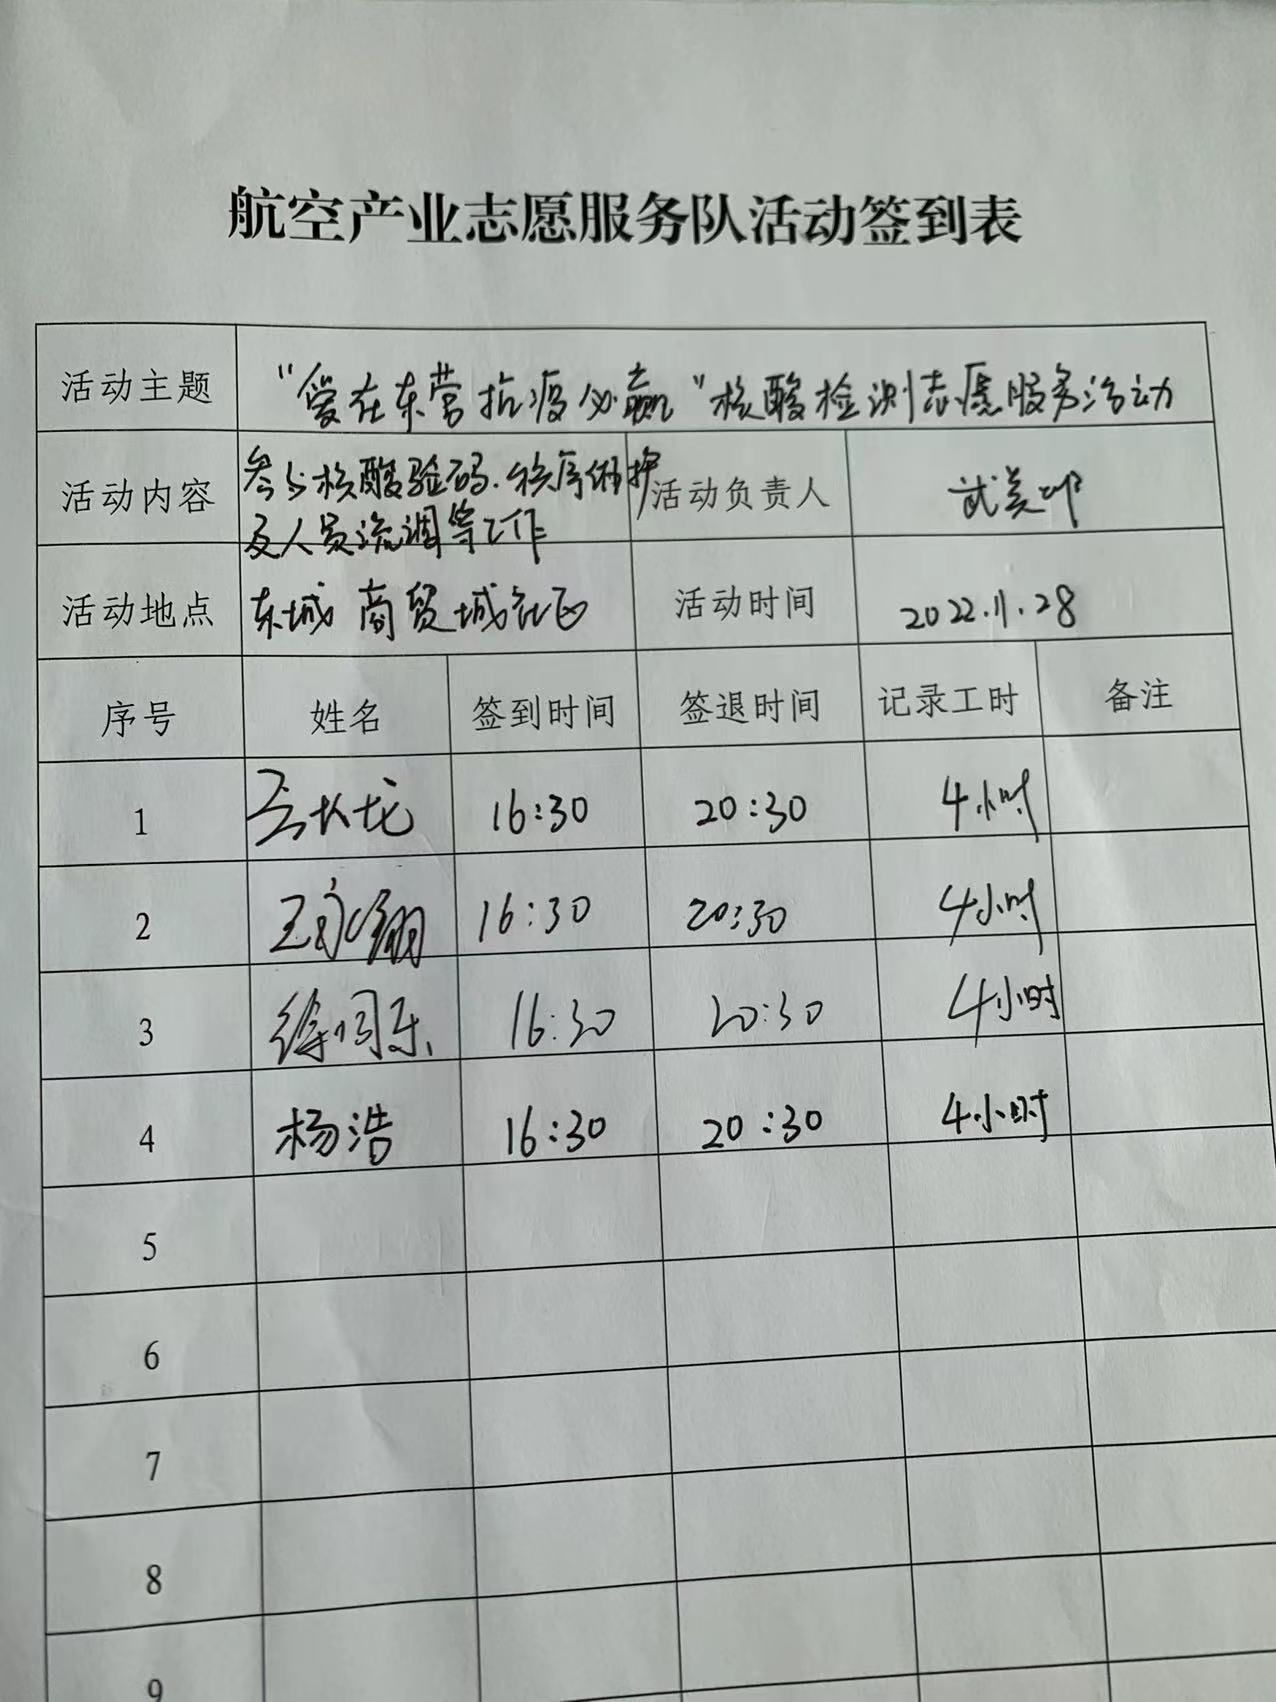 航空产业志愿服务队活动签到表
活动主题 "爱在东营抗疫必赢"核酸检测志愿服务活动
活动内容 参与核酸验码、秩序维护
及人员流调等工作
活动负责人 武美
活动地点 东城 商贸城社区 活动时间 2022.11.28
序号 姓名 签到时间 签退时间 记录工时 备注
1 龙 16:30 20:30 4小时
2 王永翔 16:30 20:30 4小时
3 徐 东 16:30 20:30 4小时
4 杨浩 16:30 20:30 4小时
5
6
7
8
9